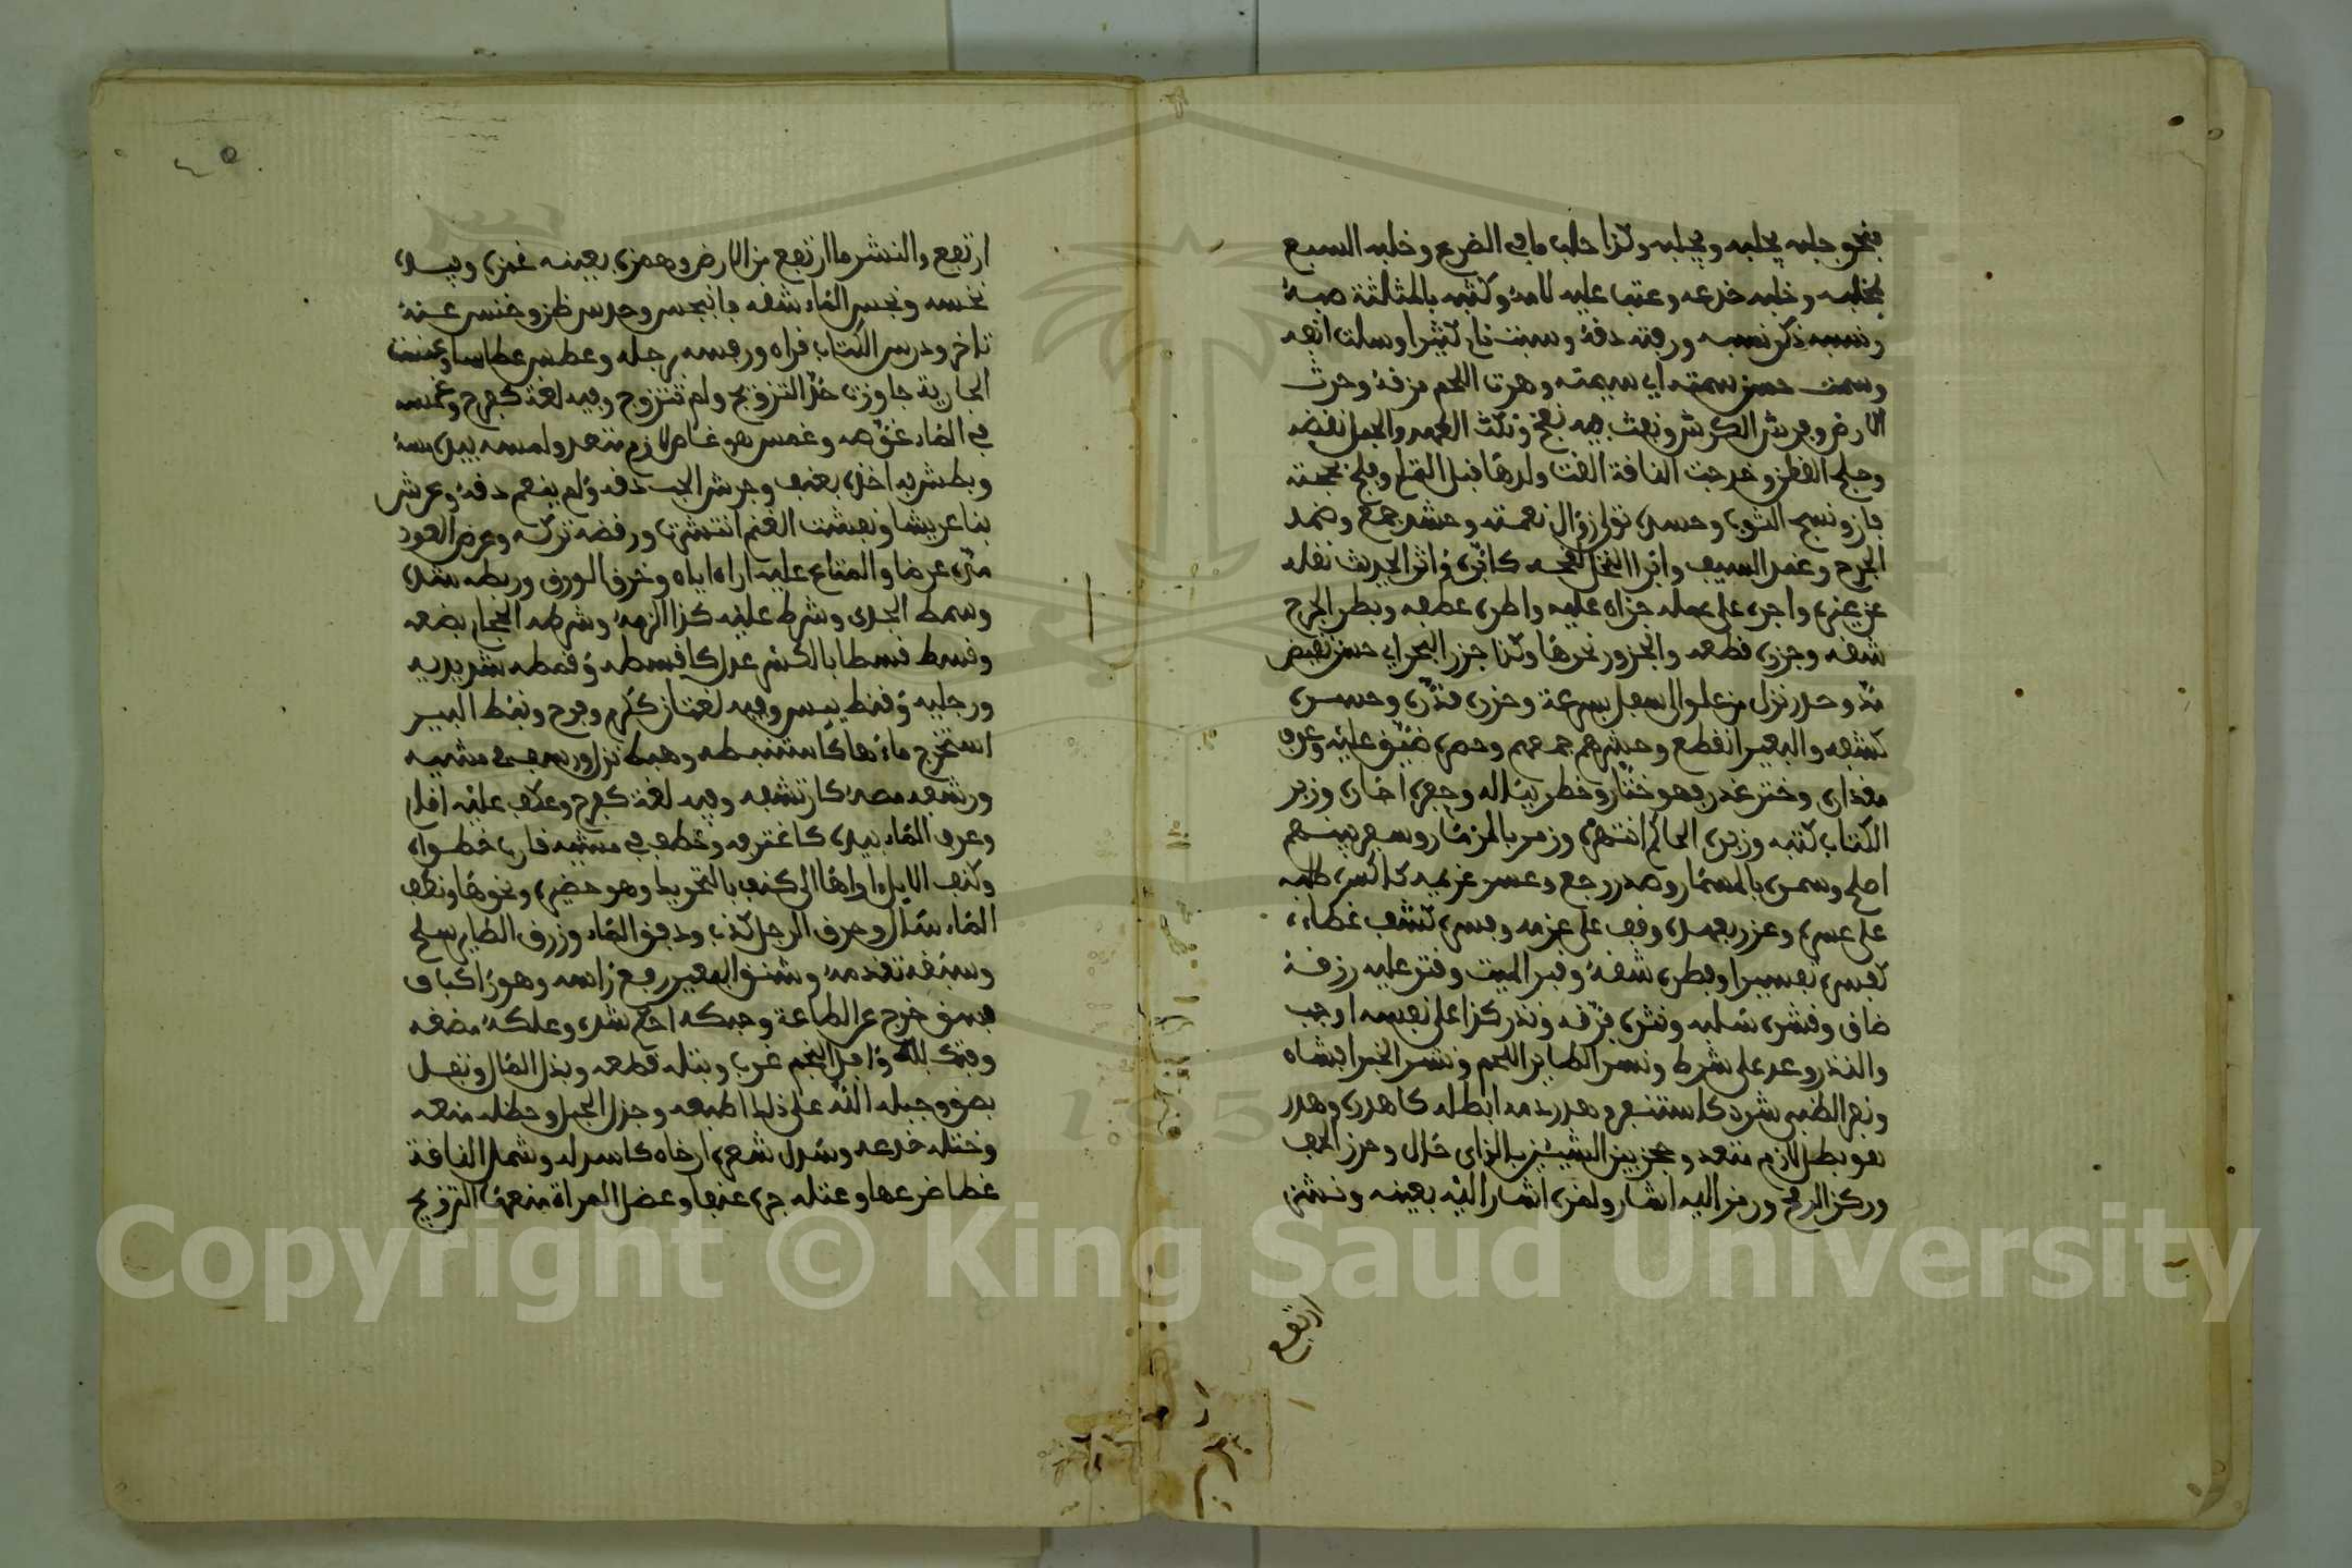 فنحو جلبه يجلبه ويجلبه وكذا حلب ما في الضرع وخلبه السبع
بمخلبه وخلبه خدعه وعتب عليه لامه وكثبه بالمثلثة صبه
ونسبه ذكر نسبه ورفته دقه وسبت نام كثيرا وسلت انفه
وسمت حسن سمته اي سيمته وهرت اللحم مزقه وحرث
الارض وفرث الكرش ونفث فيه نفخ ونكث العهد والحبل نقضه
وحلج القطن وخدجت الناقة القت ولدها قبل التمام وفلج بحجته
فاز ونسج الثوب وحسده تولى زوال نعمته وحشد جمع وضمد
الجرح وغمد السيف وابر النخل لقحه كابره واثر الحديث نقله
عن غيره واجره على عمله جزاه عليه واطره عطفه وبطر الجرح
شقه وجزره قطعه والجزور نحرها وكذا جزر البحر اي حسر نقيض
مد وحدر نزل من علو الى سفل بسرعة وحزره قدره وحسره
كشفه والبعير انقطع وحشرهم جمعهم وحصره ضيق عليه وعرف
مقداره وختر غدر فهو ختار وخطر بباله وخفره اجاره وزبر
الكتاب كتبه وزبره الحاكم انتهره وزمر بالمزمار وسفر بينهم
اصلح وسمره بالمسمار وصدر رجع وعسر غريمه كاعسره طلبه
على عسره وعزر بعمده وقف على عزمه وفسره كشف غطاءه
كفسره تفسيرا وفطره شقه وقبر الميت وقتر عليه رزقه
ضاق وقشره سلبه ونثره فرقه ونذر كذا على نفسه اوجب
والنذر وعد على شرط ونسر الطاير اللحم ونشر الخبر افشاه
ونفر الظبي شرد كاستنفر وهدر دمه ابطله كاهدره وهدر
هو بطل لازم متعد وحجز بين الشيئين بالزاي حال وخرز الخف
وركز الرمح ورمز اليه اشار ولمزه اشار اليه بعينه ونشز
ارتفع
ارتفع والنشز ما ارتفع من الارض وهمزه بعينه غمزه وبيده
نخسه وبجس الماء شقه فانبجس وحدس ظن وخنس عنه
تاخر ودرس الكتاب قراه ورفسه برجله وعطس عطاسا وعنست
الجارية جاوزت حد التزويج ولم تتزوج وفيه لغة كفرح وغمسه
في الماء غوصه وغمس هو غاص لازم متعد ولمسه بيده مسه
وبطش به اخذه بعنف وجرش الحب دقه ولم ينعم دقه وعرش
بنا عريشا ونفشت الغنم انتشرت ورفضه تركه وعرض العود
مثل عرضا والمتاع عليه اراه اياه وخرق الورق وربطه شده
وسمط الجدي وشرط عليه كذا الزمه وشرطه الحجام بضعه
وقسط قسطا بالكسر عدل كاقسطه وقمطه شد يديه
ورجليه وقنط ييس وفيه لغتان ككرم وفرح ونبط البير
استخرج ماءها كاستنبطه وهبط نزل ورسف في مشيه
ورشفه مصه كارتشفه وفيه لغة كفرح وعكف عليه اقام
وغرف الماء بيده كاغترفه وقطف في مشيه قارب خطوه
وكنف الابل اواها الى كنف بالتحريك وهو حضيرة ونحوها ونطف
الماء سال وخرق الرجل كذب ودفق الماء وزرق الطاير سلح
وسبقه تقدمه وشنق البعير رفع راسه وهو راكبه و
فسق خرج عن الطاعة وحبكه احكم شده وعلكه مضغه
وفتك به وافل النجم غرب وبتله قطعه وبذل المال وتفل
بصق وجبله الله على ذلك اطبعه وجزل الحبل وحظله منعه
وختله خدعه وسدل شعره ارخاه كاسدله وشمل الناقة
غطا ضرعها وعتله جره عنفا وعضل المراة منعها التزويج